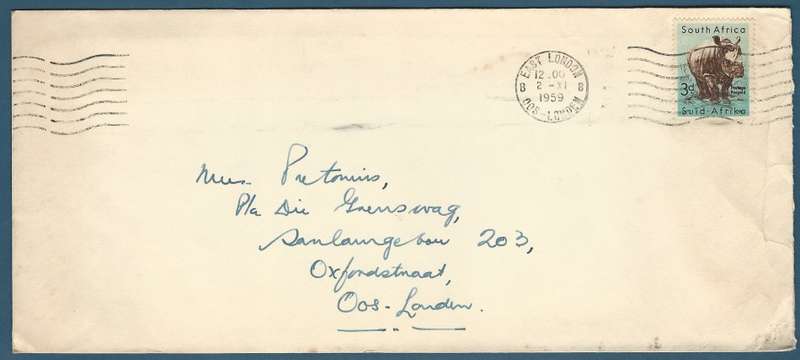 EAST LONDON
12.00
2 - XI
1959
OOS-LONDEN
B B
South Africa
3d
Postage
Suid-Afrika
Mev. Pretorius,
P/a Die Grenswag,
Sanlamgebou 203,
Oxfordstraat,
Oos-Londen.